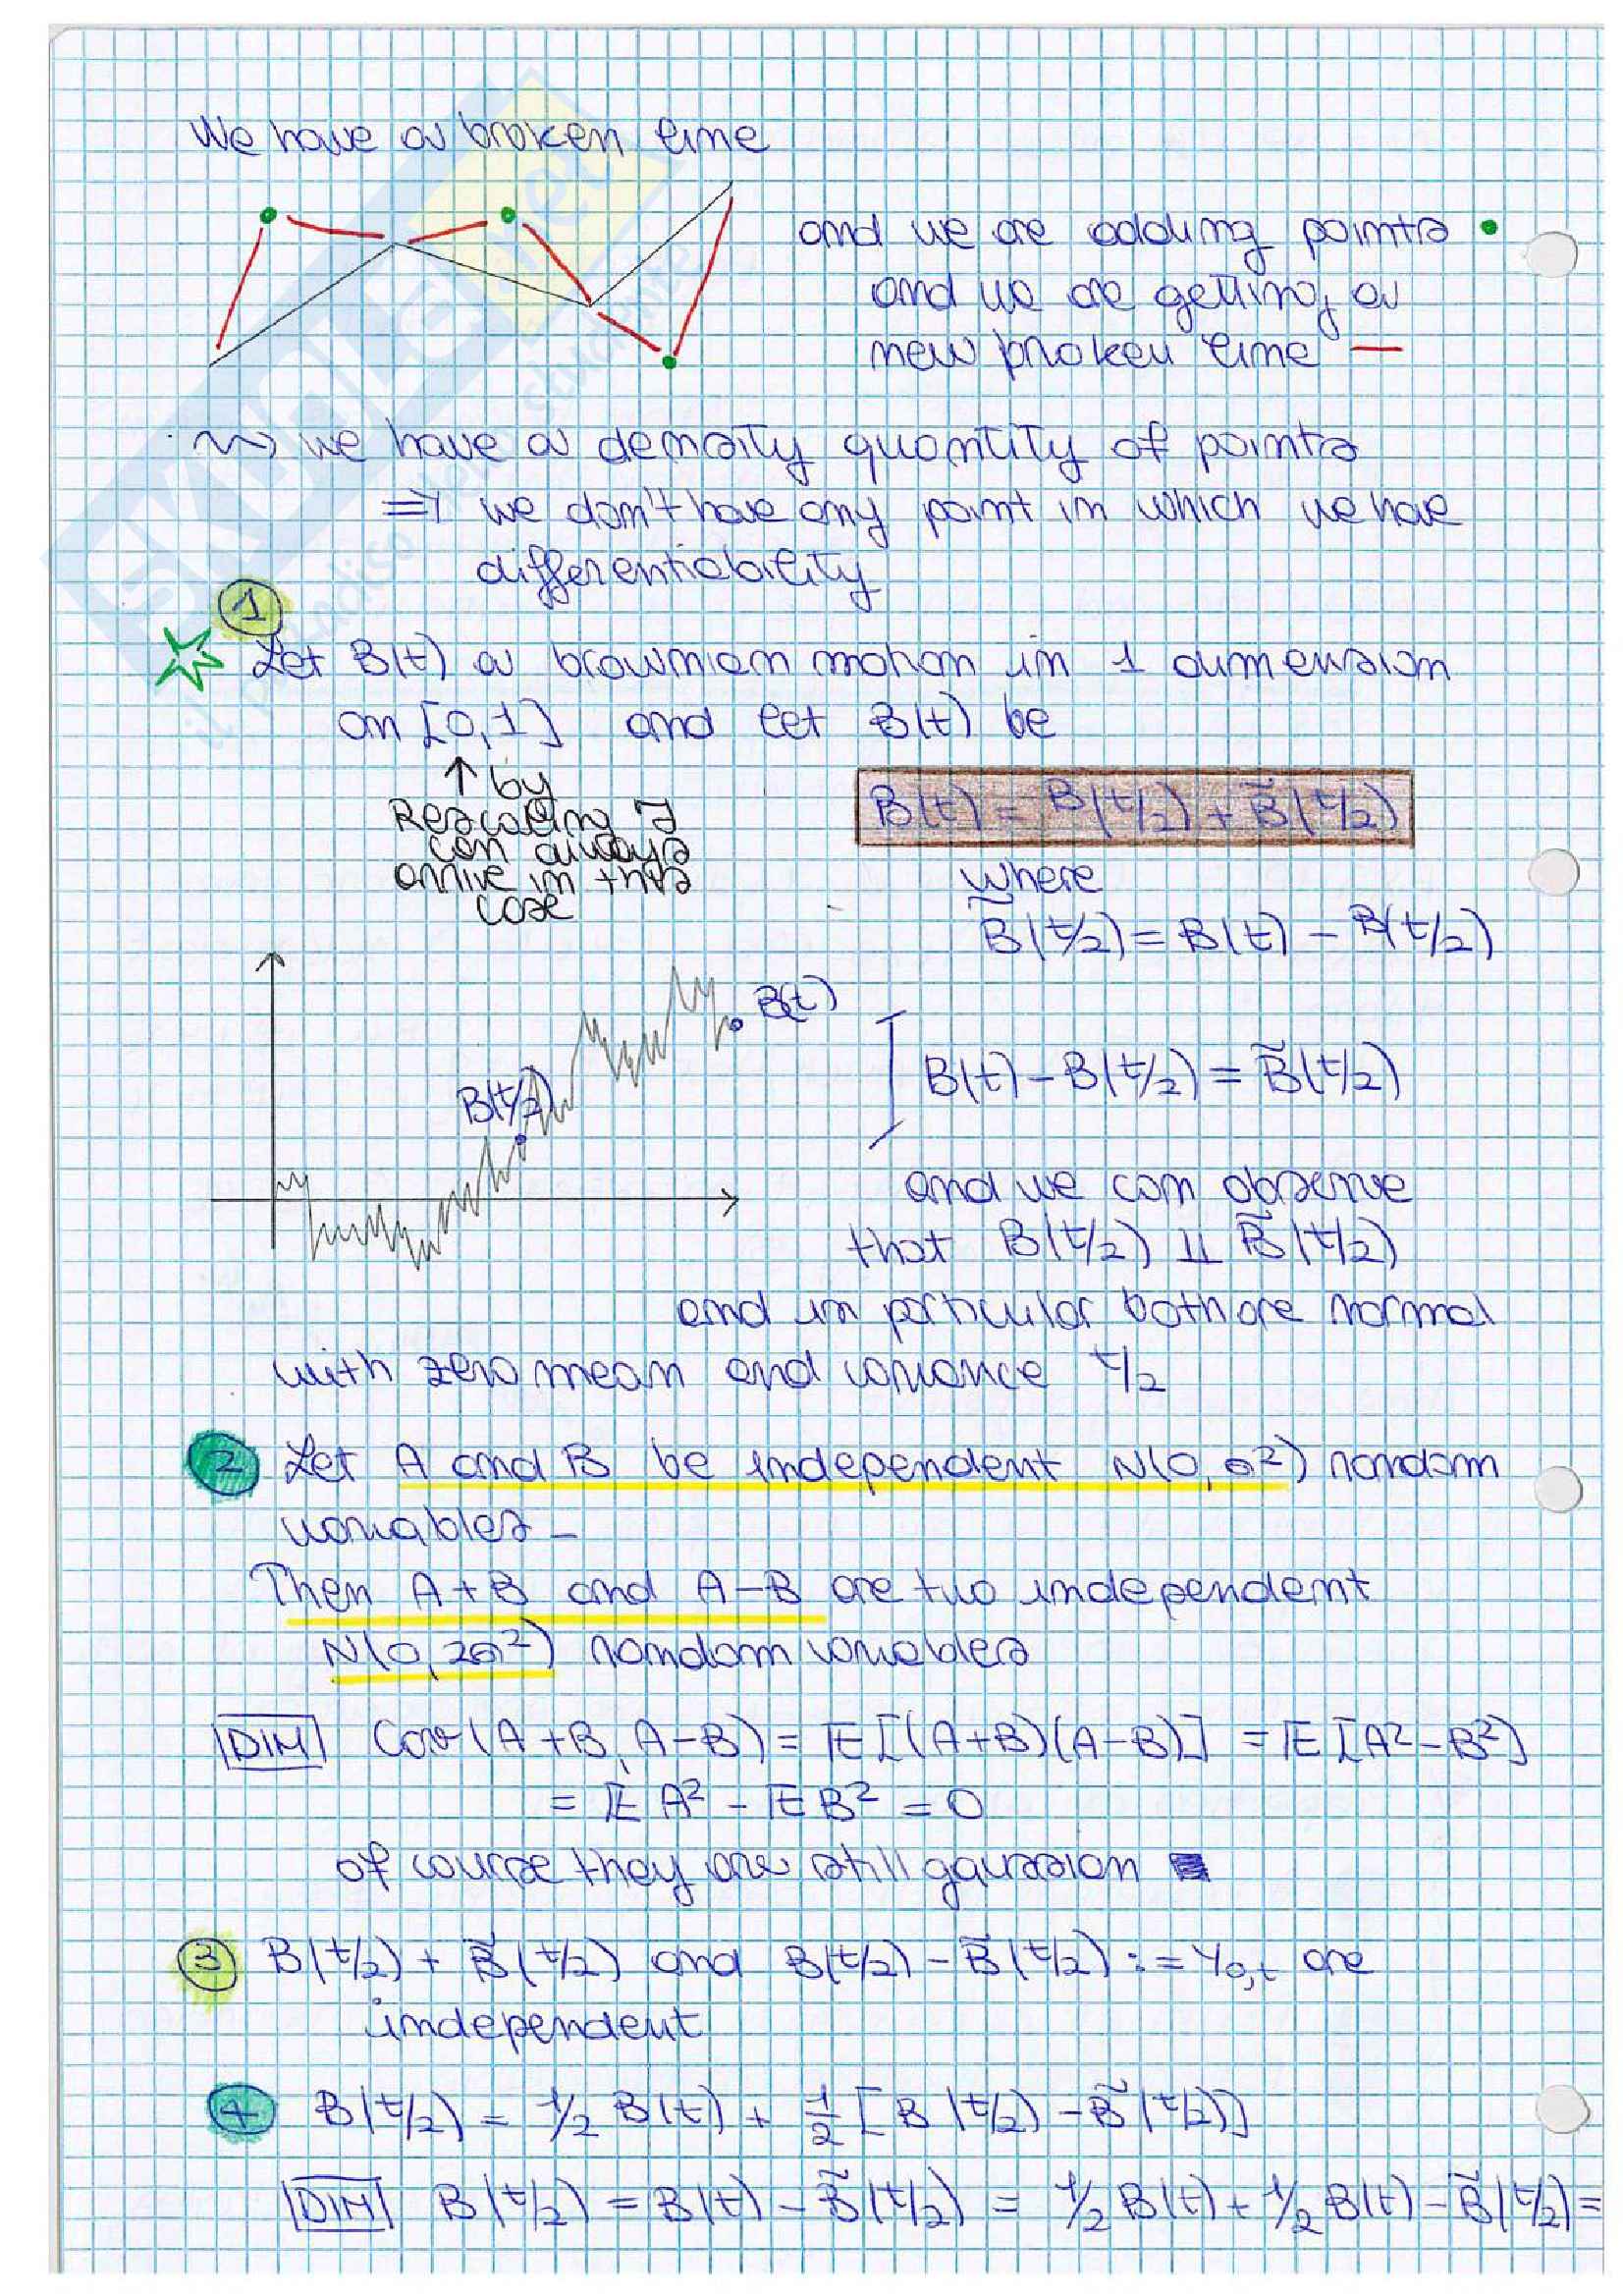 We have a broken line
and we are adding points •
and we are getting a
new broken line —
~> we have a density quantity of points
=> we don't have any point in which we have
differentiability
1
Let B(t) a brownian motion in 1 dimension
on [0,1] and let B(t) be
↑ by
Rescaling I
can always
arrive in this
case
B(t) = B(t/2) + B̃(t/2)
where
B̃(t/2) = B(t) - B(t/2)
B(t)
B(t/2)
B(t) - B(t/2) = B̃(t/2)
and we can observe
that B(t/2) ⊥⊥ B̃(t/2)
and in particular both are normal
with zero mean and variance t/2
2 Let A and B be independent N(0,σ²) random
variables -
Then A+B and A-B are two independent
N(0,2σ²) random variables
DIM Cov(A+B, A-B) = E[(A+B)(A-B)] = E[A²-B²]
= E A² - E B² = 0
of course they are still gaussian
3 B(t/2) + B̃(t/2) and B(t/2) - B̃(t/2) := Y₀,t are
independent
4 B(t/2) = 1/2 B(t) + 1/2 [B(t/2) - B̃(t/2)]
DIM B(t/2) = B(t) - B̃(t/2) = 1/2 B(t) + 1/2 B(t) - B̃(t/2) =